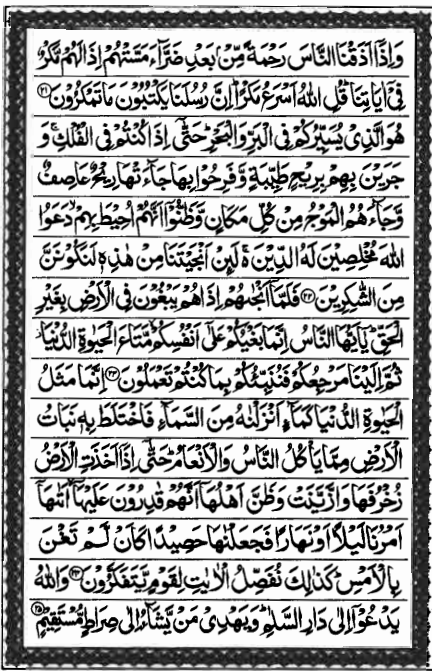 وَاِذَاۤ اَذَقْنَا النَّاسَ رَحْمَةً مِّنْۢ بَعْدِ ضَرَّآءَ مَسَّتْهُمْ اِذَا لَهُمْ مَّكْرٌ
فِیْۤ اٰیَاتِنَا ؕ قُلِ اللّٰهُ اَسْرَعُ مَكْرًا ؕ اِنَّ رُسُلَنَا یَكْتُبُوْنَ مَا تَمْكُرُوْنَ ﴿۲۱﴾
هُوَ الَّذِیْ یُسَیِّرُكُمْ فِی الْبَرِّ وَالْبَحْرِ ؕ حَتّٰۤی اِذَا كُنْتُمْ فِی الْفُلْكِ ۚ وَ
جَرَیْنَ بِهِمْ بِرِیْحٍ طَیِّبَةٍ وَّفَرِحُوْا بِهَا جَآءَتْهَا رِیْحٌ عَاصِفٌ
وَّجَآءَهُمُ الْمَوْجُ مِنْ كُلِّ مَكَانٍ وَّظَنُّوْۤا اَنَّهُمْ اُحِیْطَ بِهِمْ ۙ دَعَوُا
اللّٰهَ مُخْلِصِیْنَ لَهُ الدِّیْنَ ۚ۬ لَئِنْ اَنْجَیْتَنَا مِنْ هٰذِهٖ لَنَكُوْنَنَّ
مِنَ الشّٰكِرِیْنَ ﴿۲۲﴾ فَلَمَّاۤ اَنْجٰىهُمْ اِذَا هُمْ یَبْغُوْنَ فِی الْاَرْضِ بِغَیْرِ
الْحَقِّ ؕ یٰۤاَیُّهَا النَّاسُ اِنَّمَا بَغْیُكُمْ عَلٰۤی اَنْفُسِكُمْ مَّتَاعَ الْحَیٰوةِ الدُّنْیَا ؗ
ثُمَّ اِلَیْنَا مَرْجِعُكُمْ فَنُنَبِّئُكُمْ بِمَا كُنْتُمْ تَعْمَلُوْنَ ﴿۲۳﴾ اِنَّمَا مَثَلُ
الْحَیٰوةِ الدُّنْیَا كَمَآءٍ اَنْزَلْنٰهُ مِنَ السَّمَآءِ فَاخْتَلَطَ بِهٖ نَبَاتُ
الْاَرْضِ مِمَّا یَاْكُلُ النَّاسُ وَالْاَنْعَامُ ؕ حَتّٰۤی اِذَاۤ اَخَذَتِ الْاَرْضُ
زُخْرُفَهَا وَازَّیَّنَتْ وَظَنَّ اَهْلُهَاۤ اَنَّهُمْ قٰدِرُوْنَ عَلَیْهَاۤ ۙ اَتٰىهَاۤ
اَمْرُنَا لَیْلًا اَوْ نَهَارًا فَجَعَلْنٰهَا حَصِیْدًا كَاَنْ لَّمْ تَغْنَ
بِالْاَمْسِ ؕ كَذٰلِكَ نُفَصِّلُ الْاٰیٰتِ لِقَوْمٍ یَّتَفَكَّرُوْنَ ﴿۲۴﴾ وَاللّٰهُ
یَدْعُوْۤا اِلٰی دَارِ السَّلٰمِ ؕ وَیَهْدِیْ مَنْ یَّشَآءُ اِلٰی صِرَاطٍ مُّسْتَقِیْمٍ ﴿۲۵﴾